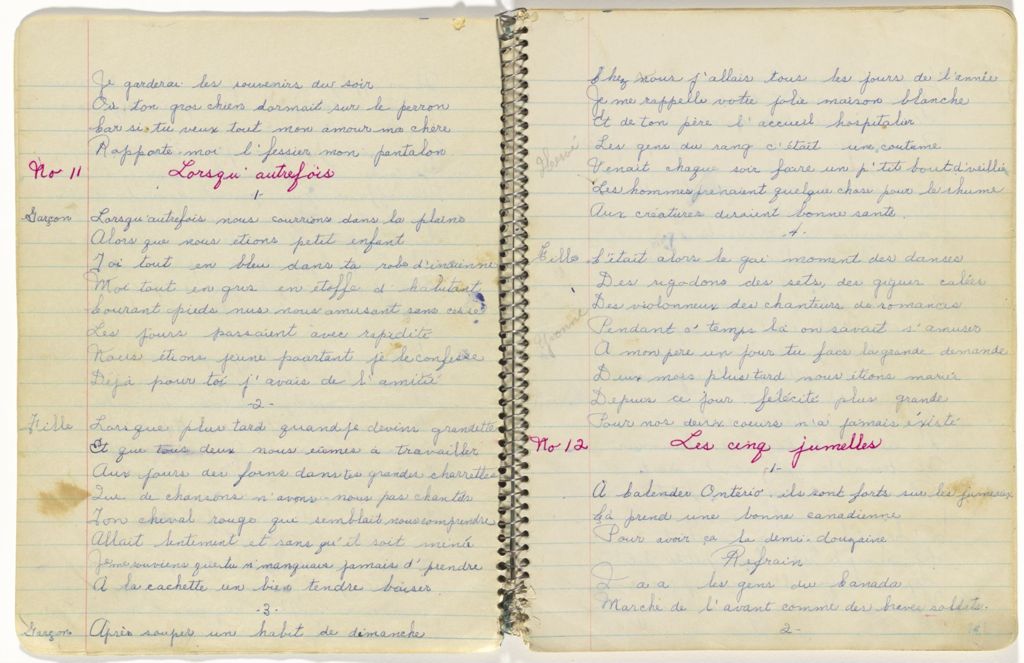 Je garderai les souvenirs du soir
Où ton gros chien dormait sur le perron
Car si tu veux tout mon amour ma chère
Rapporte moi l'fessier mon pantalon
No 11 Lorsqu'autrefois
1-
Garçon Lorsqu'autrefois nous courrions dans la plaine
Alors que nous étions petit enfant
Toi tout en bleu dans ta robe d'indienne
Moi tout en gris en étoffe d'habitant
Courant pieds nus nous amusant sans cesse
Les jours passaient avec rapidité
Nous étions jeune pourtant je le confesse
Déjà pour toi j'avais de l'amitié
-2-
Fille Lorsque plus tard quand je devins grandette
Et que tous deux nous eûmes à travailler
Aux jours des foins dans les grandes charrettes
Que de chansons n'avons-nous pas chantés
Ton cheval rouge qui semblait nous comprendre
Allait lentement et sans qu'il soit mené
Je me souviens que tu n'manquais jamais d'prendre
A la cachette un bien tendre baiser
-3-
Garçon Après souper un habit de dimanche
Chez nous j'allais tous les jours de l'année
Je me rappelle votre jolie maison blanche
Et de ton père l'accueil hospitalier
Les gens du rang c'était une coutume
Hervé
Venait chaque soir faire un p'tit bout d'veillée
Les hommes prenaient quelque chose pour le rhume
Aux créatures disaient bonne santé.
-4-
Fille C'était alors le gai moment des danses
Des rigodons des sets, des gigues calées
Des violonneux des chanteurs de romances
Yvonne
Pendant c'temps là on savait s'amuser
A mon père un jour tu facs la grande demande
Deux mois plus tard nous étions mariés
Depuis ce jour félécité plus grande
Pour nos deux coeurs n'a jamais éxisté
No 12 Les cinq jumelles
-1-
A Calender Ontério. ils sont forts sur les jumeaux
Ça prend une bonne canadienne
Pour avoir ça la demi-douzaine
Refrain
les gens du Canada
Marche de l'avant comme des braves soldats.
2-